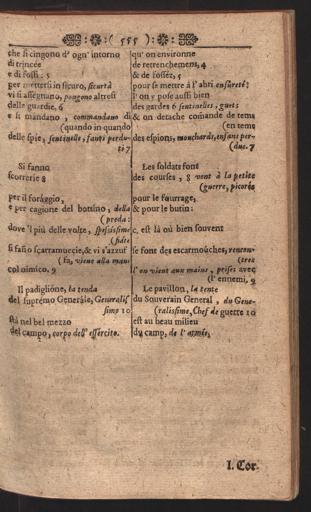 :( 555 ):
che si cingono d' ogn' intorno
di trincée
e di fossi: 5
per mettersi in sicuro, sicurtà
vi si assegnano, pongono altresi
delle guardie, 6
e si mandano, commandano di
(quando in quando
delle spie, sentinelle, fanti perdu-
ti 7
Si fanno
scorrerie 8
per il foràggio,
e per cagione del bottino, della
(preda:
dove 'l più delle volte, spesissime
(fiate
si fano scarramuccie, & vi s'azzuf
(fa, viene alla mani
col nimico. 9
Il padiglione, la tenda
del suprémo Generàle, Generalis
simo 10
stà nel bel mezzo
del campo, corpo dell' essercito.
qu' on environne
de retrenchemens, 4
& de fossez, 5
pour se mettre à l' abri en sûreté:
l' on y pose aussi bien
des gardes 6 sentinelles, guets
& on detache comande de tems
(en tems
des espions, mouchards, enfans per-
(dus. 7
Les soldats font
des courses, 8 vont à la petite
(guerre, picorée
pour le fourrage,
& pour le butin:
c. est là où bien souvent
se font des escarmouches, rencon-
(tres
l' en vient aux mains, prises avec
(l' ennemi, 9
Le pavillon, la tente
du Souverain General, du Gene-
(ralissime, Chef de guerre 10
est au beau milieu
du camp, de l' armée,
I. Cor-